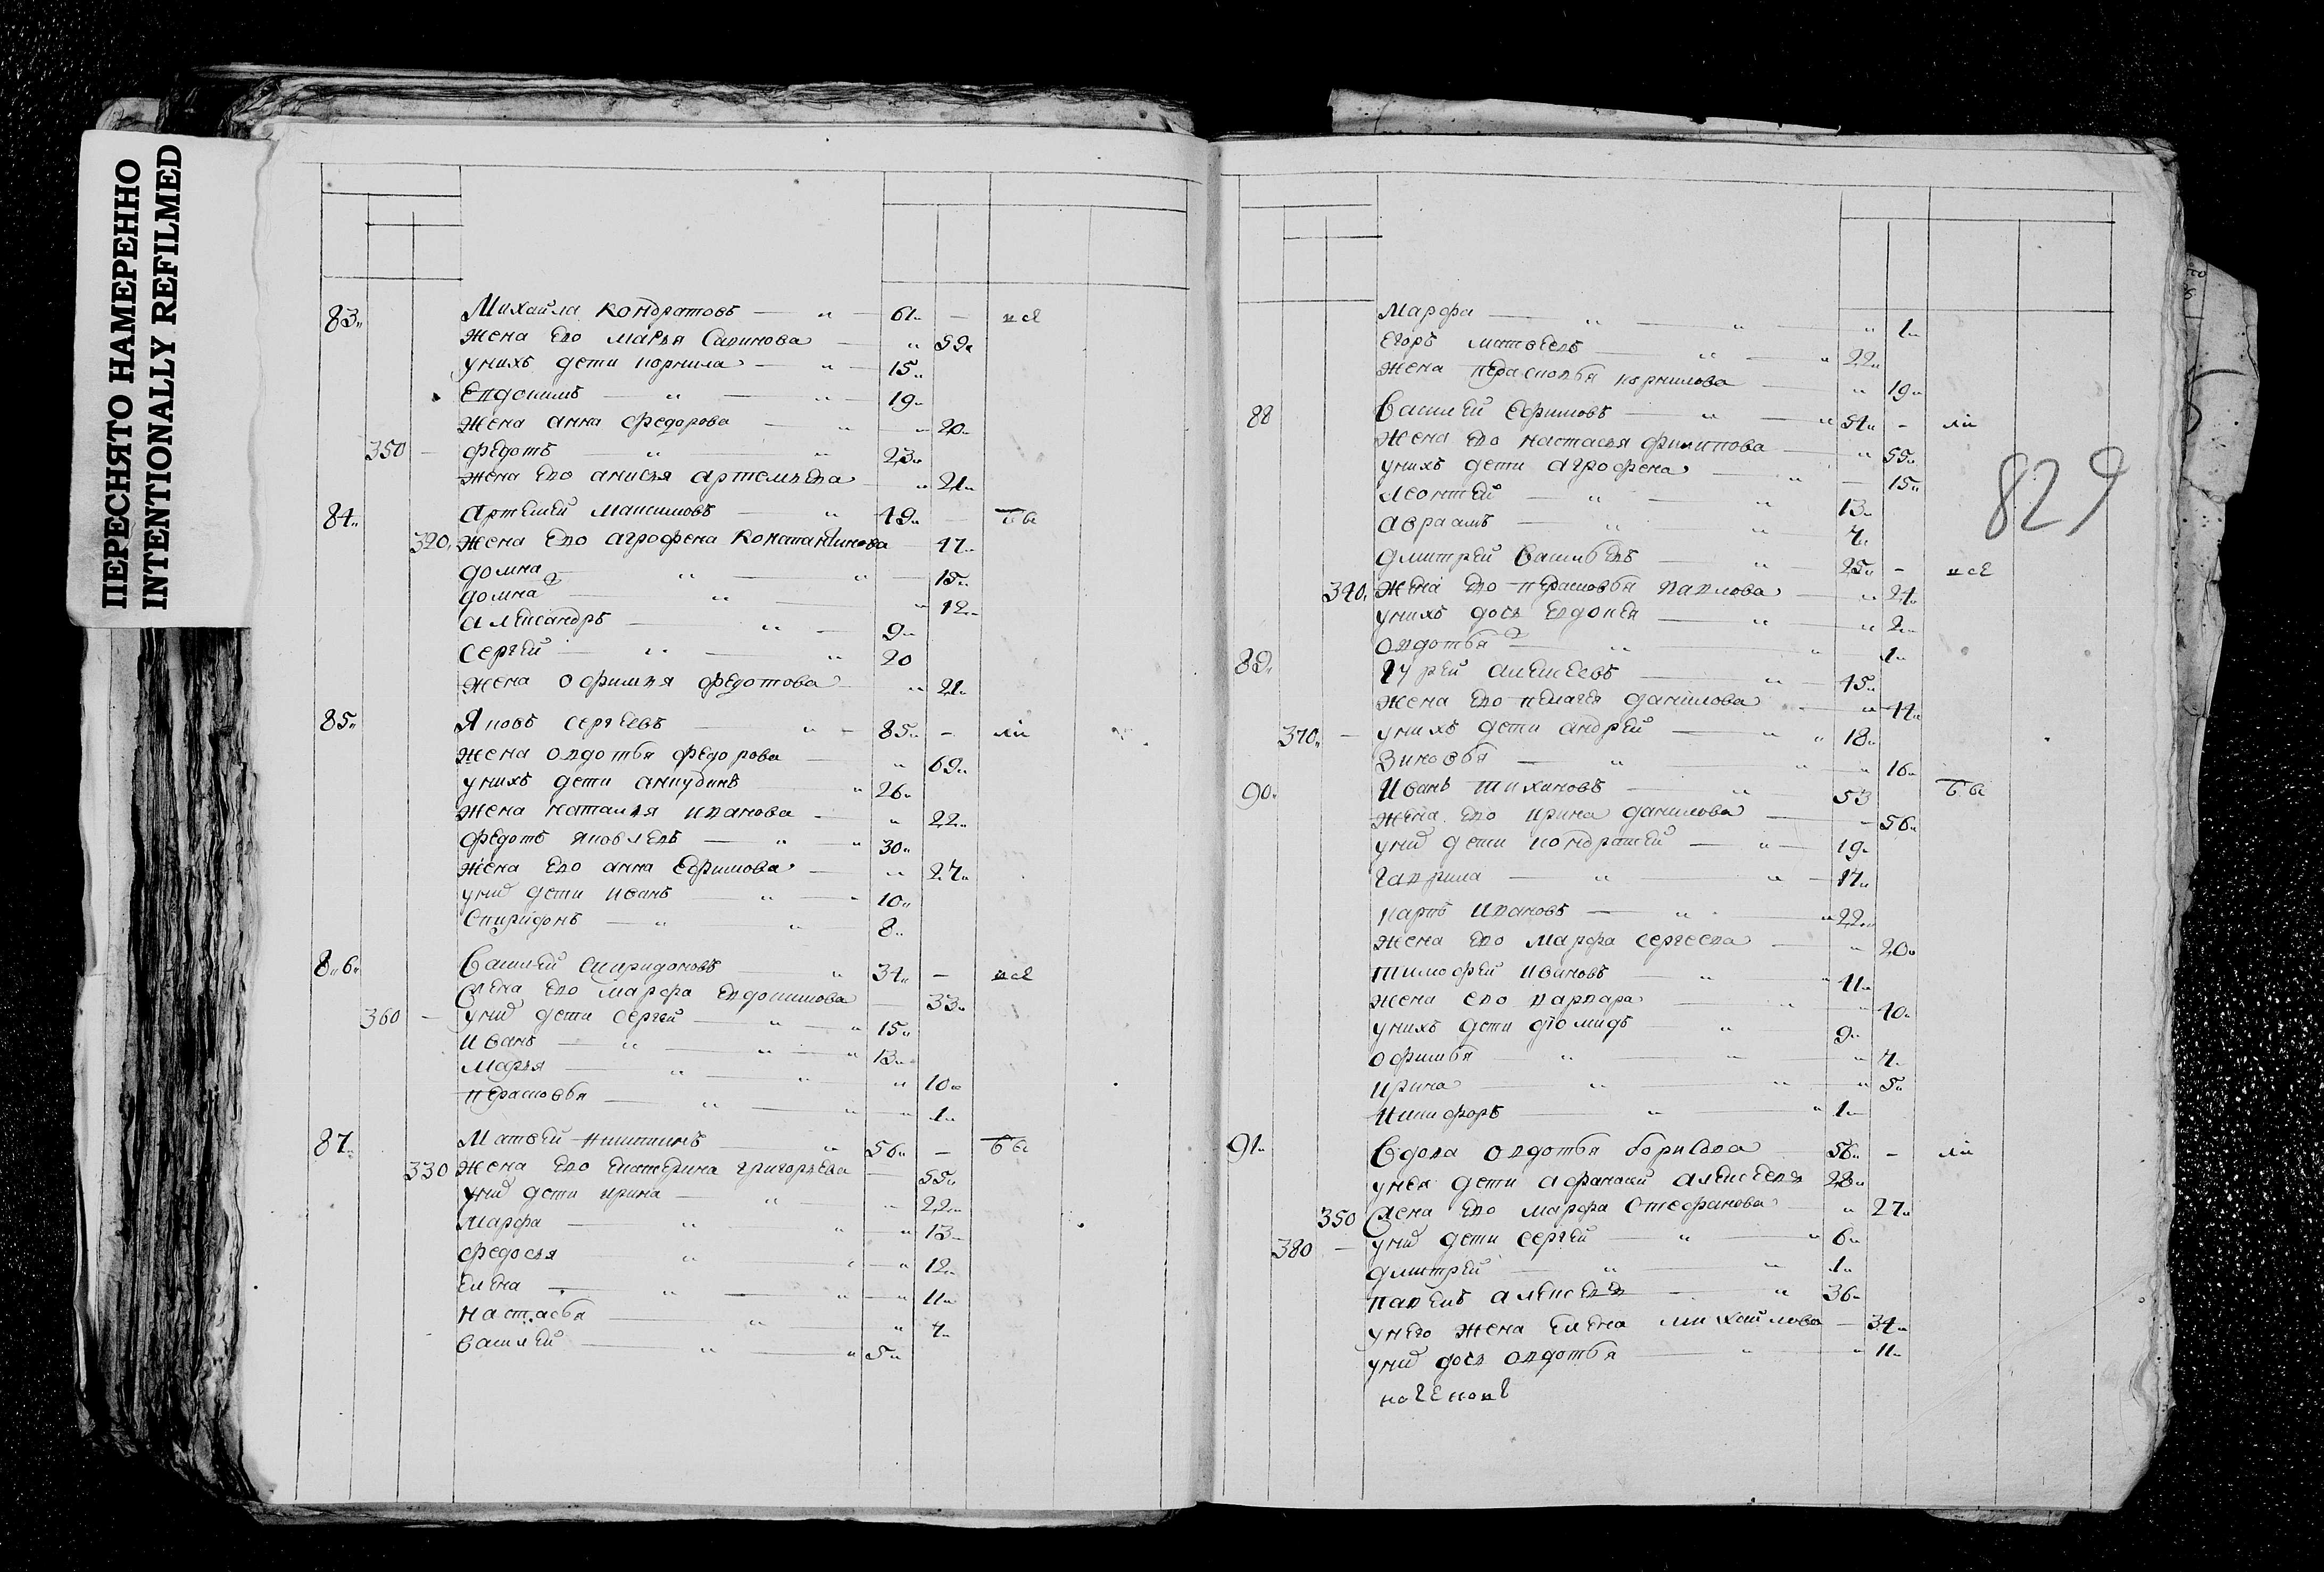 ПЕРЕСНЯТО НАМЕРЕННО
INTENTIONALLY REFILMED
83 Михайла Кондратовъ — 61 —
жена ево марья Савинова — 59
унихъ дети корнила — 15
Евдокимъ — 19
жена анна федорова — 20
350 — федотъ — 23
жена ево анисья артемьева — 21
84 артемей максимовъ — 49 —
320 жена ево агрофена константинова — 47
домна — 15
домна 2 — 12
александръ — 9
сергей — 20
жена офимья федотова — 21
85 Яковъ сергеевъ — 85 —
жена овдотья федорова — 69
унихъ дети анкудинъ — 26
жена наталья иванова — 22
федотъ яковлевъ — 30
жена ево анна Ефимова — 27
уних дети иванъ — 10
Спиридонъ — 8
86 Василей спиридоновъ — 34 —
жена ево марфа Евдокимова — 33
360 — уних дети сергей — 15
иванъ — 13
марья — 10
перасковья — 1
87 Матвей никитинъ — 56 —
330 жена ево екатерина григорьева — 55
уних дети ирина — 22
марфа — 13
федосья — 12
елена — 11
настасья — 7
василей — 5
829
марфа — 1
егоръ матвеевъ — 22
жена перасковья корнилова — 19
88 Василей ефимовъ — 54 —
жена ево настасья филипова — 55
унихъ дети агрофена — 15
леонтей — 13
авраамъ — 7
дмитрей васильевъ — 25 —
340 жена ево перасковья павлова — 24
унихъ дочь евдокея — 2
овдотья 2 — 1
89 Гурей алексеевъ — 45
жена ево пелагея данилова — 44
370 — унихъ дети андрей — 18
зиновья — 16
90 Иванъ тихановъ — 53
жена ево ирина данилова — 56
уних дети кондратей — 19
гаврила — 17
карпъ ивановъ — 22
жена ево марфа сергеева — 20
тимофей ивановъ — 41
жена ево варвара — 40
унихъ дети диомидъ — 9
офимья — 7
ирина — 5
никифоръ — 1
91 Вдова овдотья борисова — 56 —
унея дети афанасей алексеевъ 28
350 жена ево марфа стефанова — 27
380 — уних дети сергей — 6
дмитрей — 1
павелъ алексеевъ — 36
унего жена елена михайлова — 34
уних дочь овдотья — 11